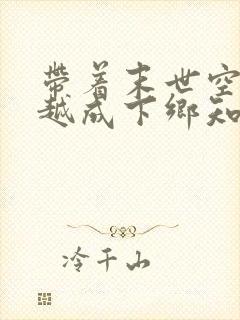 带着末世空
越成下鄉知
冷千山